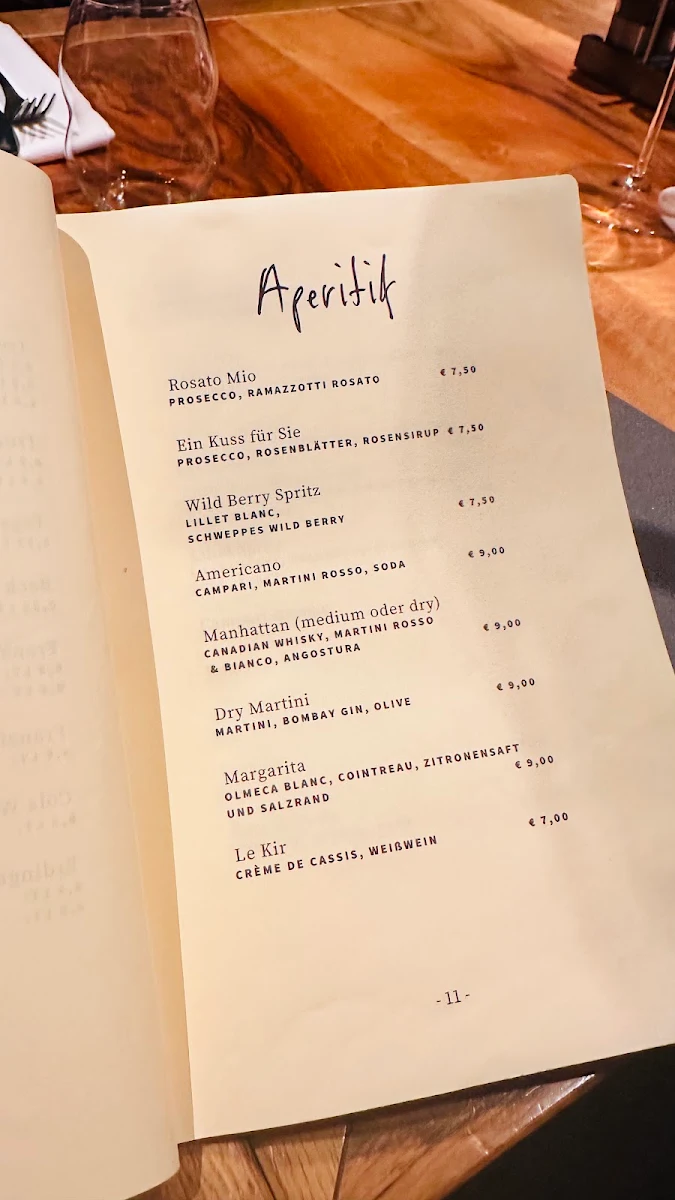 Aperitif
Rosato Mio € 7,50
PROSECCO, RAMAZZOTTI ROSATO
Ein Kuss für Sie
PROSECCO, ROSENBLÄTTER, ROSENSIRUP € 7,50
Wild Berry Spritz
LILLET BLANC, € 7,50
SCHWEPPES WILD BERRY
Americano € 9,00
CAMPARI, MARTINI ROSSO, SODA
Manhattan (medium oder dry)
CANADIAN WHISKY, MARTINI ROSSO € 9,00
& BIANCO, ANGOSTURA
Dry Martini € 9,00
MARTINI, BOMBAY GIN, OLIVE
Margarita
OLMECA BLANC, COINTREAU, ZITRONENSAFT € 9,00
UND SALZRAND
Le Kir € 7,00
CRÈME DE CASSIS, WEIßWEIN
- 11 -